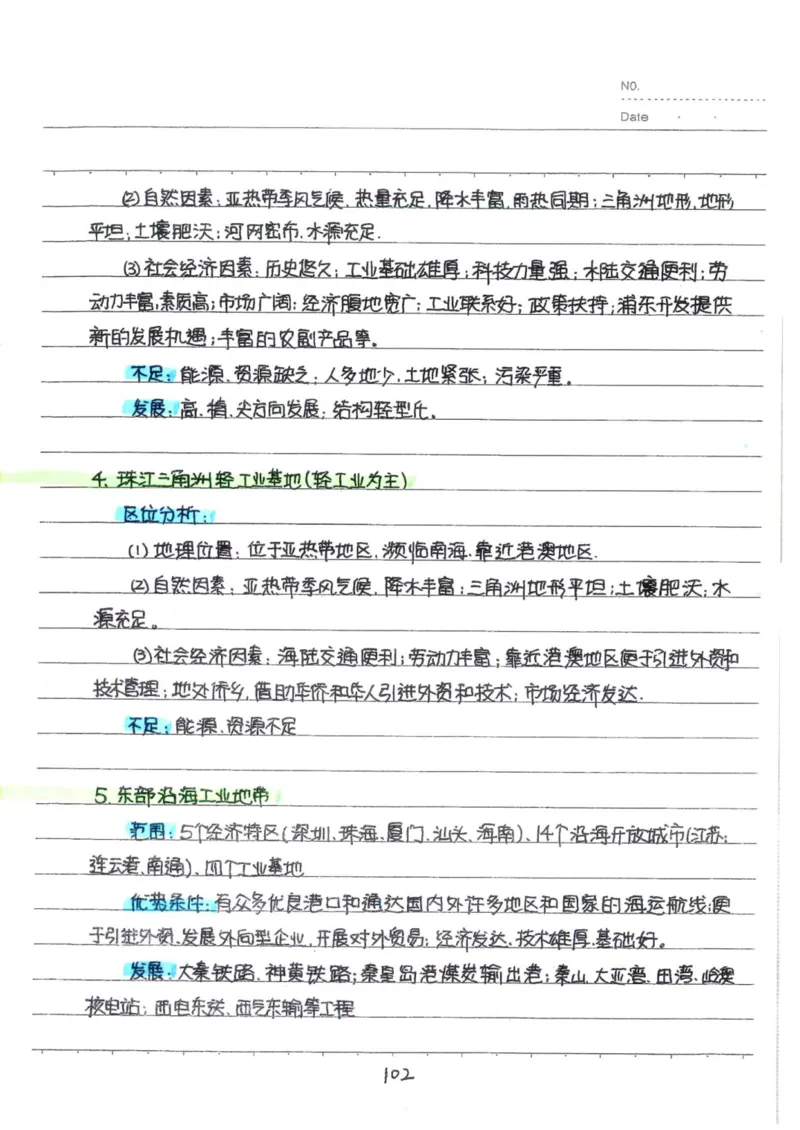 NO.
Date
(2)自然因素:亚热带季风气候,热量充足,降水丰富,雨热同期;三角洲地形,地形
平坦;土壤肥沃;河网密布,水源充足.
(3)社会经济因素:历史悠久;工业基础雄厚;科技力量强;水陆交通便利;劳
动力丰富,素质高;市场广阔;经济腹地宽广;工业联系好;政策扶持;浦东开发提供
新的发展机遇;丰富的农副产品等。
不足:能源、资源缺乏;人多地少,土地紧张;污染严重。
发展:高、精、尖方向发展;结构轻型化。
4.珠江三角洲轻工业基地(轻工业为主)
区位分析:
(1)地理位置:位于亚热带地区,濒临南海,靠近港澳地区.
(2)自然因素:亚热带季风气候,降水丰富;三角洲地形平坦;土壤肥沃;水
源充足。
(3)社会经济因素:海陆交通便利;劳动力丰富;靠近港澳地区便于引进外资和
技术管理;地处侨乡,借助华侨和华人引进外资和技术;市场经济发达.
不足:能源、资源不足
5.东部沿海工业地带
范围:5个经济特区(深圳、珠海、厦门、汕头、海南)、14个沿海开放城市(江苏:
连云港、南通)、四个工业基地
优势条件:有众多优良港口和通达国内外许多地区和国家的海运航线;便
于引进外资、发展外向型企业,开展对外贸易;经济发达、技术雄厚、基础好。
发展:大秦铁路、神黄铁路;秦皇岛港煤炭输出港;秦山、大亚湾、田湾、岭澳
核电站;西电东送、西气东输等工程
102